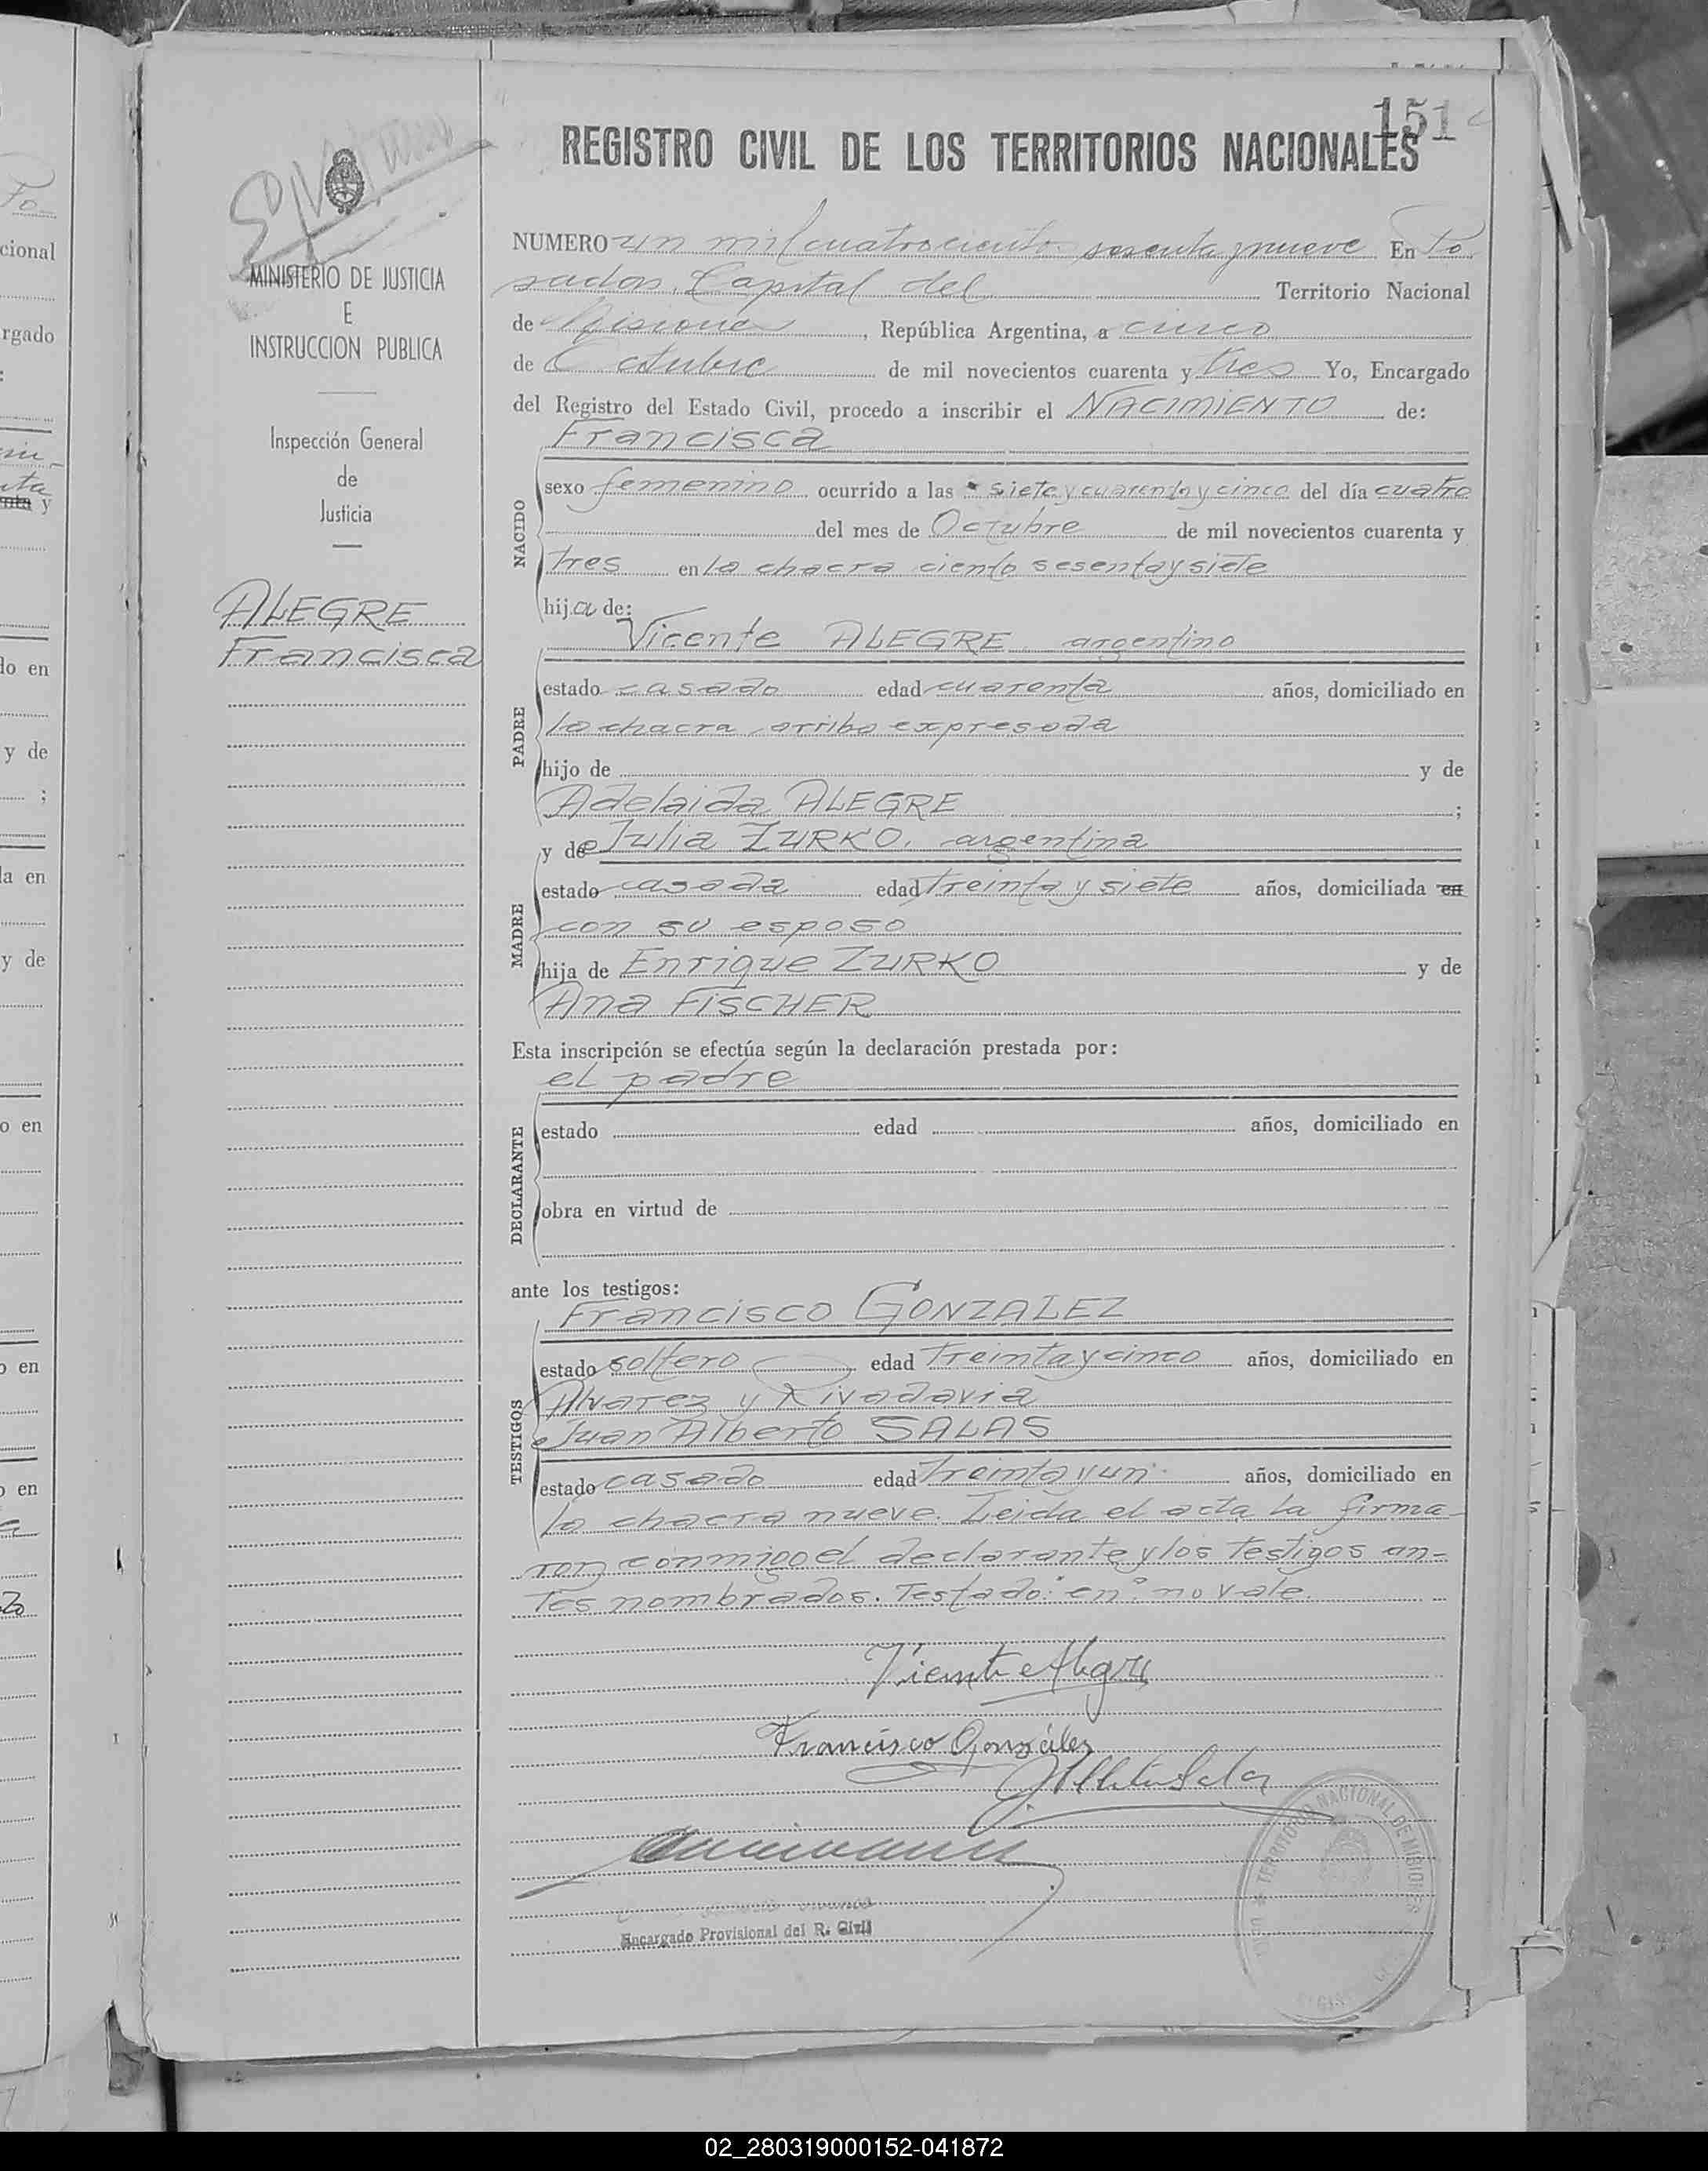 151
REGISTRO CIVIL DE LOS TERRITORIOS NACIONALES
MINISTERIO DE JUSTICIA
E
INSTRUCCION PUBLICA
Inspección General
de
Justicia
ALEGRE
Francisca
NUMERO un mil cuatrocientos sesenta y nueve En Po
sadas, Capital del Territorio Nacional
de Misiones, República Argentina, a cinco
de Octubre de mil novecientos cuarenta y tres Yo, Encargado
del Registro del Estado Civil, procedo a inscribir el NACIMIENTO de:
Francisca
NACIDO
sexo femenino ocurrido a las siete y cuarenta y cinco del día cuatro
del mes de Octubre de mil novecientos cuarenta y
tres en la chacra ciento sesenta y siete
hija de:
Vicente ALEGRE argentino
PADRE
estado casado edad cuarenta años, domiciliado en
la chacra arriba expresada
hijo de y de
Adelaida ALEGRE ;
y de Julia ZURKO, argentina
MADRE
estado casada edad treinta y siete años, domiciliada en
con su esposo
hija de Enrique ZURKO y de
Ana FISCHER
Esta inscripción se efectúa según la declaración prestada por:
el padre
DECLARANTE
estado edad años, domiciliado en
obra en virtud de
ante los testigos:
Francisco GONZALEZ
TESTIGOS
estado soltero edad treinta y cinco años, domiciliado en
Alvarez y Rivadavia
e Juan Alberto SALAS
estado casado edad treinta y un años, domiciliado en
la chacra nueve. Leida el acta la firma-
ron conmigo el declarante y los testigos an-
tes nombrados. Testado: "en" no vale.
Vicente Alegre
Francisco González
JAlberto Salas
Encargado Provisional del R. Civil
TERRITORIO NACIONAL DE MISIONES
02_280319000152-041872